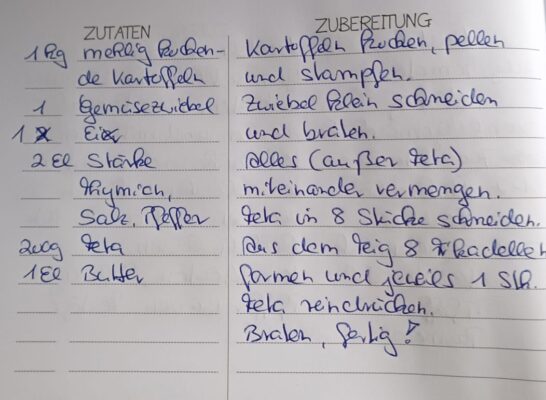 ZUTATEN
1 kg mehlig kochen-
de Kartoffeln
1 Gemüsezwiebel
1 Ei
2 El Stärke
Thymian,
Salz, Pfeffer
200g Feta
1 El Butter
ZUBEREITUNG
Kartoffeln kochen, pellen
und stampfen.
Zwiebel klein schneiden
und braten.
Alles (außer Feta)
miteinander vermengen.
Feta in 8 Stücke schneiden.
Aus dem Teig 8 Frikadellen
formen und jeweils 1 Stk.
Feta reindrücken.
Braten, fertig!